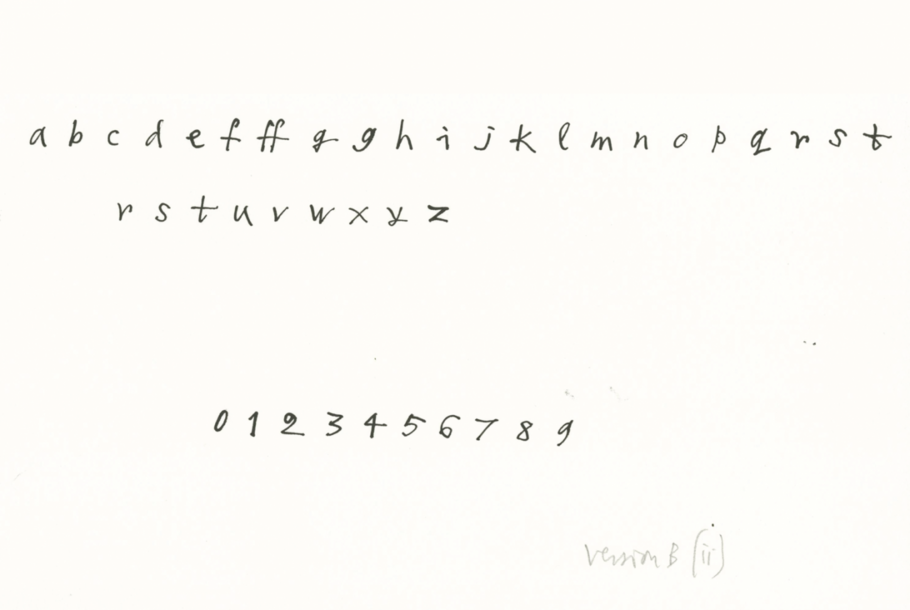 a b c d e f ff g g h i j k l m n o p q r s t
r s t u v w x y z
0 1 2 3 4 5 6 7 8 9
version B (ii)